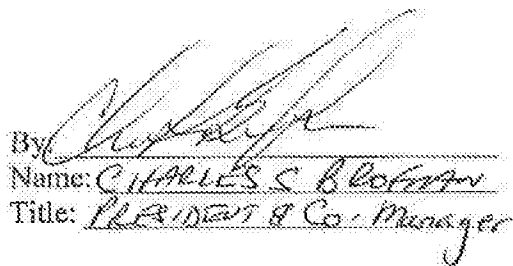 By
Name: CHARLES S
Title: PRESIDENT & Co-Manager